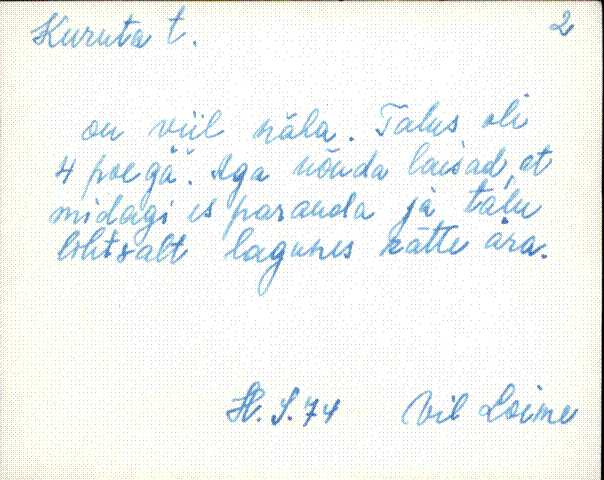 Kuruta t. 2
on viil näha. Talus oli
4 poega. Aga nõnda laisad, et
midagi es paranda ja talu
lihtsalt lagunes kätte ära.
H. S. 74 Vil Loime